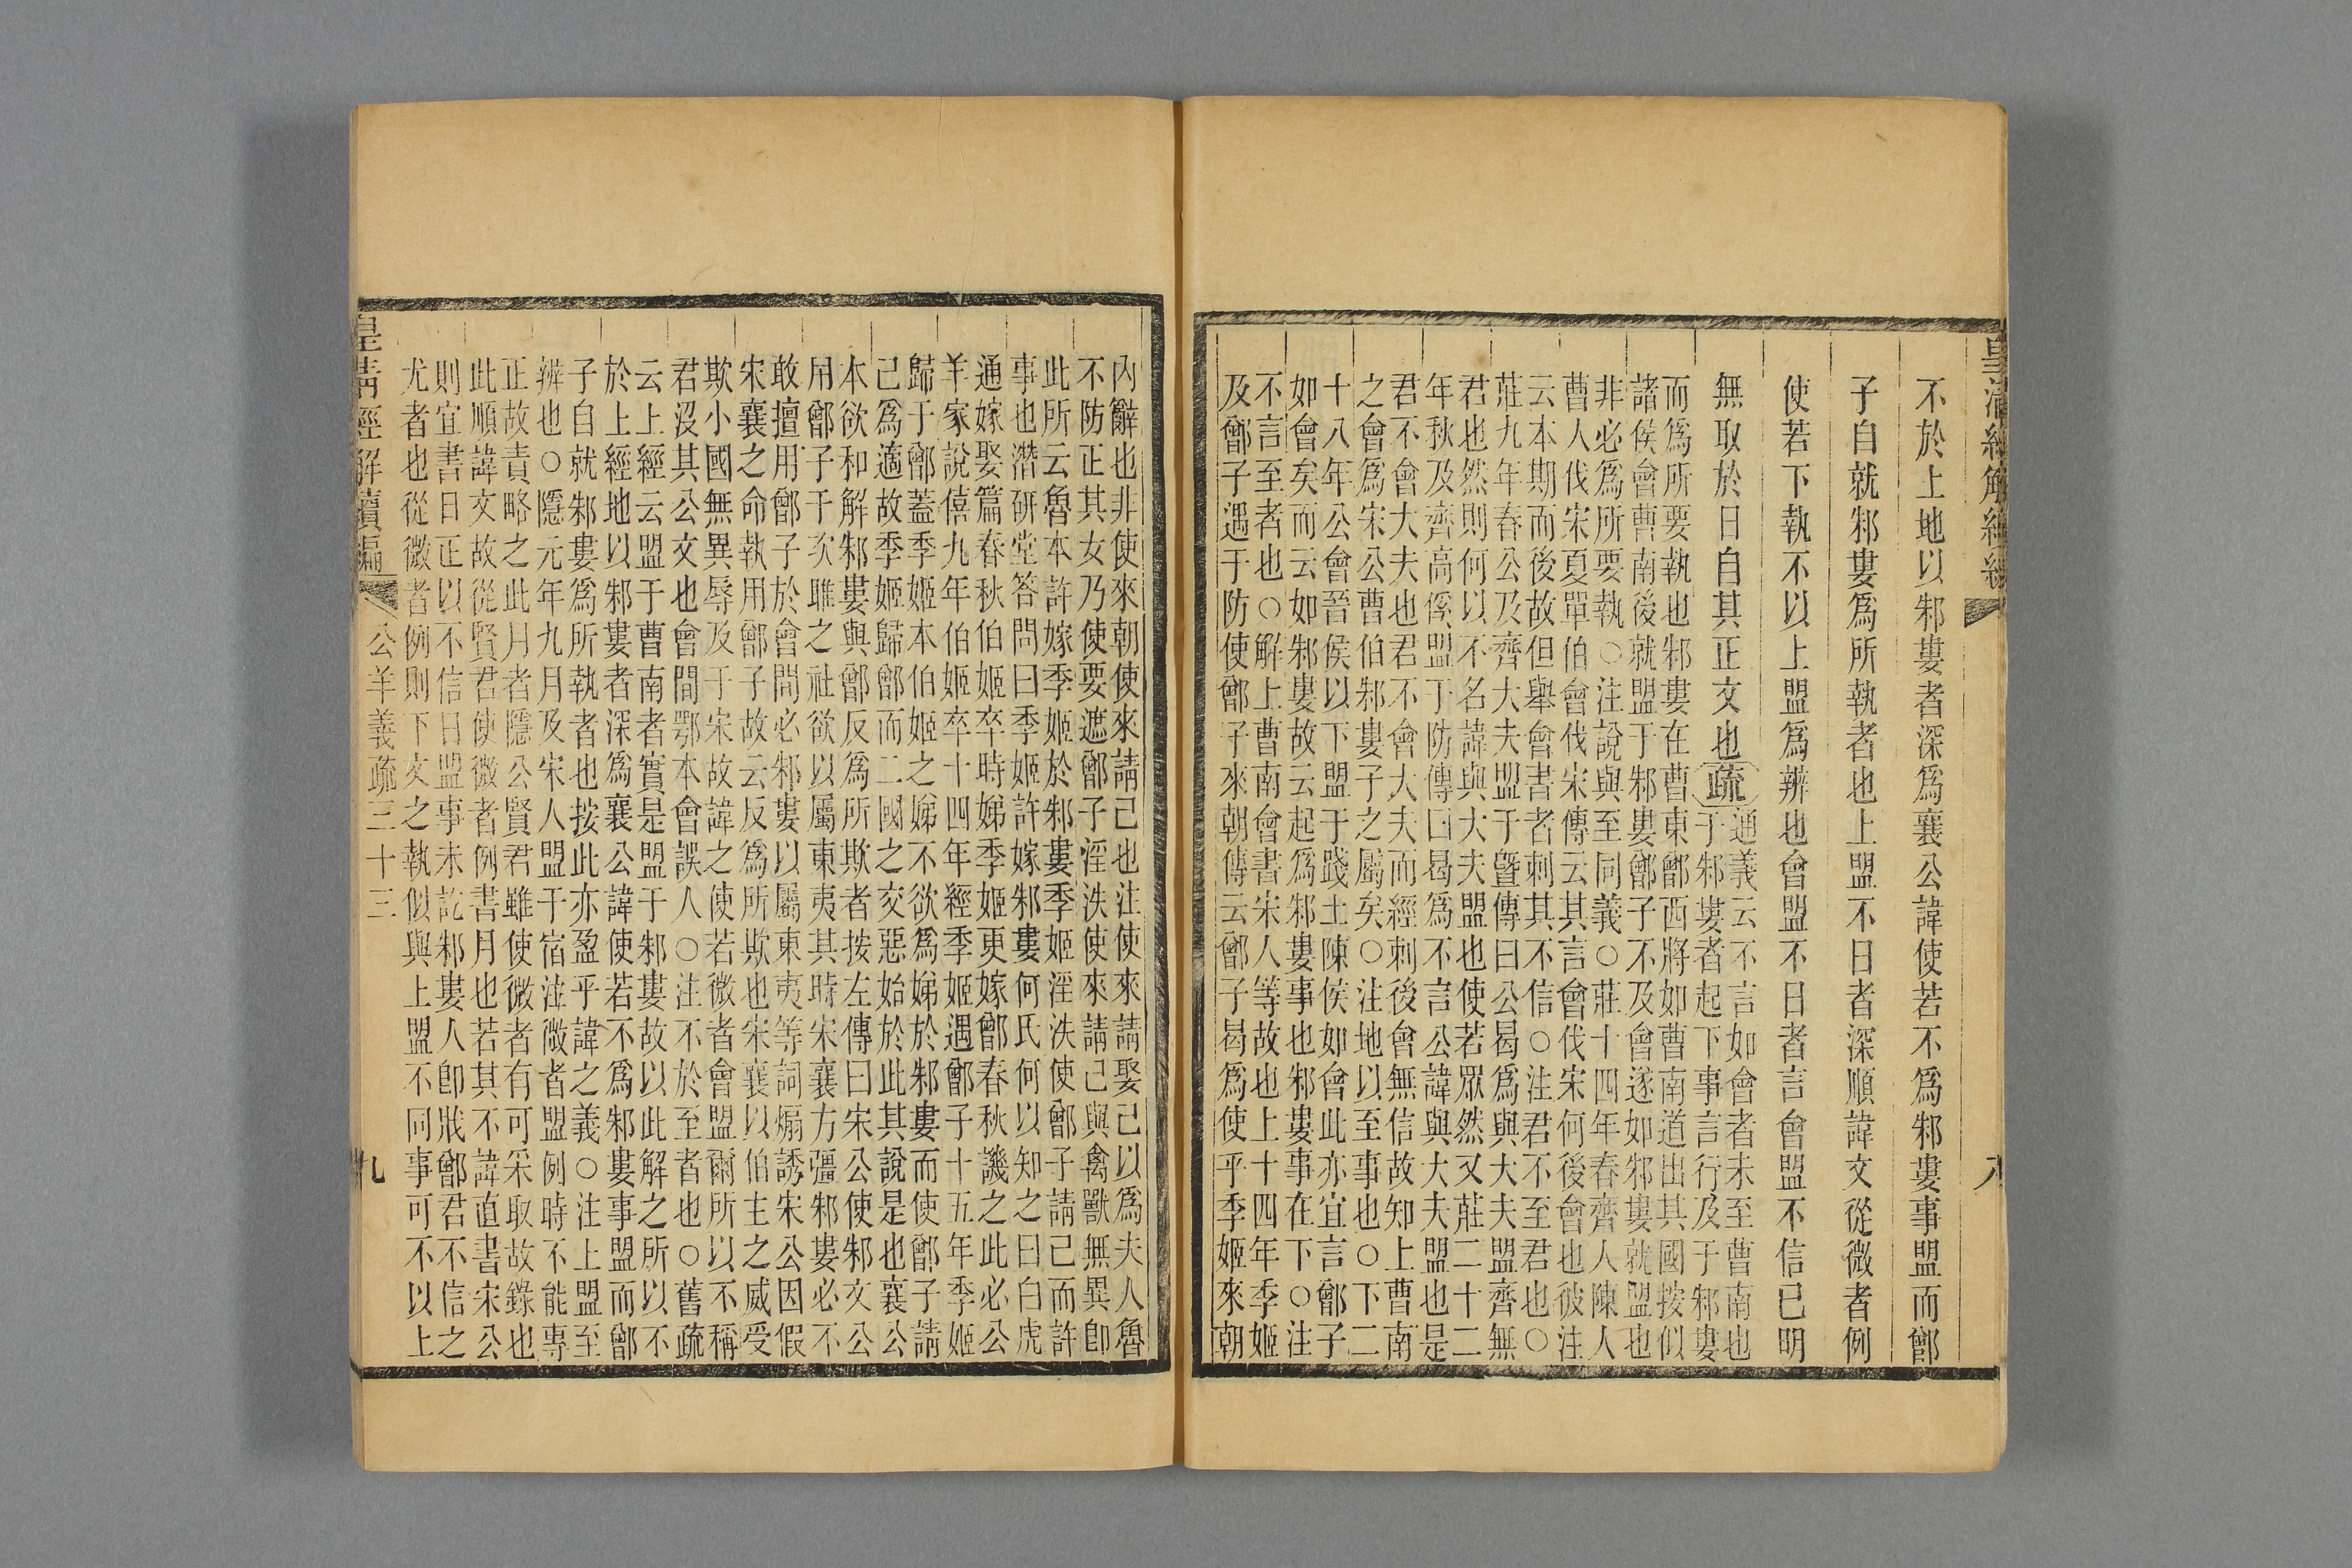 皇清經解續編
八
不於上地以邾婁者深爲襄公諱使若不爲邾婁事盟而鄫
子自就邾婁爲所執者也上盟不日者深順諱文從微者例
使若下執不以上盟爲辨也會盟不日者言會盟不信已明
無取於日自其正文也疏
通義云不言如會者未至曹南也
于邾婁者起下事言行及于邾婁
而爲所要執也邾婁在曹東鄫西將如曹南道出其國按似
諸侯會曹南後就盟于邾婁鄫子不及會遂如邾婁就盟也
非必爲所要執○注說與至同義○莊十四年春齊人陳人
曹人伐宋夏單伯會伐宋傳云其言會伐宋何後會也彼注
云本期而後故但舉會書者刺其不信○注君不至君也○
莊九年春公及齊大夫盟于曁傳曰公曷爲與大夫盟齊無
君也然則何以不名諱與大夫盟也使若眾然又莊二十二
年秋及齊高傒盟于防傳曰曷爲不言公諱與大夫盟也是
君不會大夫也君不會大夫而經刺後會無信故知上曹南
之會爲宋公曹伯邾婁子之屬矣○注地以至事也○下二
十八年公會晉侯以下盟于踐土陳侯如會此亦宜言鄫子
如會矣而云如邾婁故云起爲邾婁事也邾婁事在下○注
不言至者也○解上曹南會書宋人等故也上十四年季姬
及鄫子遇于防使鄫子來朝傳云鄫子曷爲使乎季姬來朝
內辭也非使來朝使來請己也注使來請娶己以爲夫人魯
不防正其女乃使要遮鄫子淫泆使來請己與禽獸無異卽
此所云魯本許嫁季姬於邾婁季姬淫泆使鄫子請己而許
事也潛研堂答問曰季姬許嫁邾婁何氏何以知之曰白虎
通嫁娶篇春秋伯姬卒時娣季姬更嫁鄫春秋譏之此必公
羊家說僖九年伯姬卒十四年經季姬遇鄫子十五年季姬
歸于鄫蓋季姬本伯姬之娣不欲爲娣於邾婁而使鄫子請
己爲適故季姬歸鄫而二國之交惡始於此其說是也襄公
本欲和解邾婁與鄫反爲所欺者按左傳曰宋公使邾文公
用鄫子于次睢之社欲以屬東夷其時宋襄方彊邾婁必不
敢擅用鄫子於會間必邾婁以屬東夷等詞煽誘宋公因假
宋襄之命執用鄫子故云反爲所欺也宋襄以伯主之威受
欺小國無異辱及于宋故諱之使若微者會盟爾所以不稱
君沒其公文也會間鄂本會誤人○注不於至者也○舊疏
云上經云盟于曹南者實是盟于邾婁故以此解之所以不
於上經地以邾婁者深爲襄公諱使若不爲邾婁事盟而鄫
子自就邾婁爲所執者也按此亦盈乎諱之義○注上盟至
辨也○隱元年九月及宋人盟于宿注微者盟例時不能專
正故責略之此月者隱公賢君雖使微者有可采取故錄也
此順諱文故從賢君使微者例書月也若其不諱直書宋公
則宜書日正以不信日盟事未訖邾婁人卽戕鄫君不信之
尤者也從微者例則下文之執似與上盟不同事可不以上
皇清經解續編
公羊義疏三十三
九